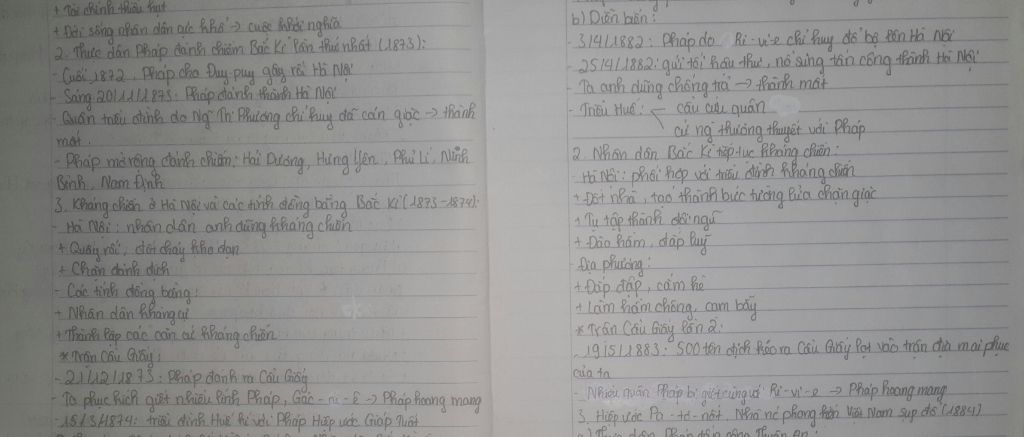 + Tài chính thiếu hụt
+ Đời sống nhân dân cực khổ → cuộc khởi nghĩa
2. Thực dân Pháp đánh chiếm Bắc Kì lần thứ nhất (1873):
- Cuối 1872, Pháp cho Đuy-puy gây rối Hà Nội
- Sáng 20/11/1873: Pháp đánh thành Hà Nội
- Quân triều đình do Ng Tri Phương chỉ huy đã cản giặc → thành
mất.
- Pháp mở rộng đánh chiếm: Hải Dương, Hưng Yên, Phủ Lí, Ninh
Bình, Nam Định
3. Kháng chiến ở Hà Nội và các tỉnh đồng bằng Bắc Kì (1873-1874):
- Hà Nội: nhân dân anh dũng kháng chiến
+ Quấy rối, đốt cháy kho đạn
+ Chặn đánh địch
- Các tỉnh đồng bằng:
+ Nhân dân kháng cự
+ Thành lập các căn cứ kháng chiến
* Trận Cầu Giấy:
- 21/12/1873: Pháp đánh ra Cầu Giấy
- Ta phục kích giết nhiều lính Pháp, Gác-ni-ê → Pháp hoang mang
- 15/3/1874: triều đình Huế kí với Pháp Hiệp ước Giáp Tuất
b) Diễn biến:
- 3/4/1882: Pháp do Ri-vi-e chỉ huy đổ bộ lên Hà Nội
- 25/4/1882: gửi tối hậu thư, nổ súng tấn công thành Hà Nội
- Ta anh dũng chống trả → thành mất
- Triều Huế: cầu cứu quân
cử ng thương thuyết với Pháp
2. Nhân dân Bắc Kì tiếp tục kháng chiến:
- Hà Nội: phối hợp với triều đình kháng chiến
+ Đốt nhà, tạo thành bức tường lửa chặn giặc
+ Tụ tập thành đội ngũ
+ Đào hầm, đắp luỹ
- Địa phương:
+ Đắp đập, cắm kè
+ Làm hầm chông, cạm bẫy
* Trận Cầu Giấy lần 2:
- 19/5/1883: 500 tên địch kéo ra Cầu Giấy lọt vào trận địa mai phục
của ta
- Nhiều quân Pháp bị giết cùng với Ri-vi-e → Pháp hoang mang
3. Hiệp ước Pa-tơ-nốt, Nhà nc phong kiến Việt Nam sụp đổ (1884)
a) Thực dân Pháp tấn công Thuận An: